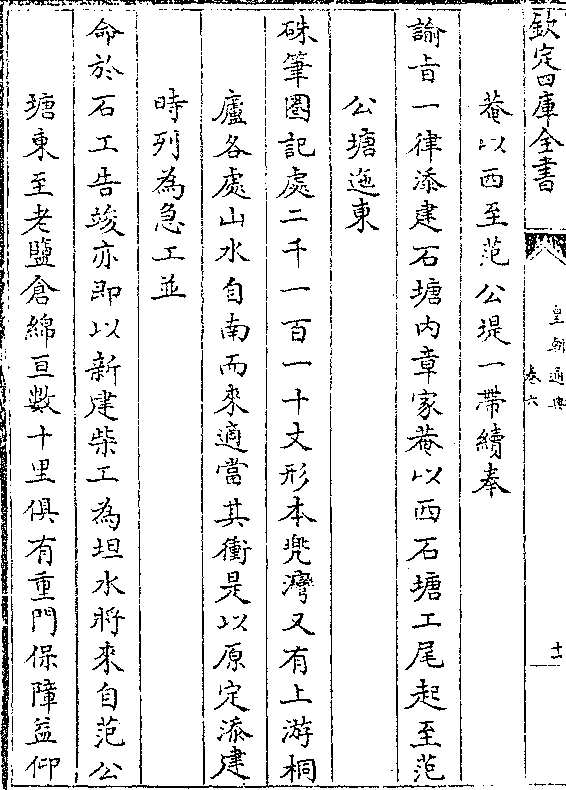 欽定四庫全書
皇朝通典
卷六
十一
菴以西至范公堤一帶續奉
諭旨一律添建石塘内章家菴以西石塘工尾起至范
公塘迤東
硃筆圏記處二千一百一十丈形本兠灣又有上游桐
廬各處山水自南而來適當其衝是以原定添建
時列為急工並
命於石工告竣亦即以新建柴工為坦水將來自范公
塘東至老鹽倉綿亘數十里俱有重門保障益仰